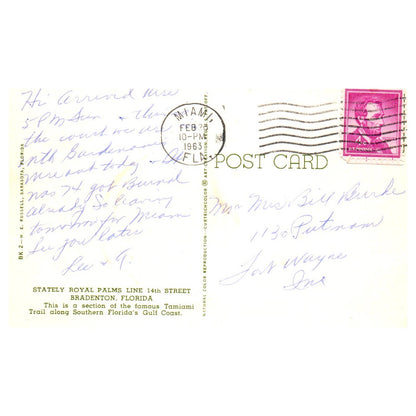 Hi Arrived here
5 PM Sun
the court we
nth Bardenown
were out today
was 74 got Burned
Already So leaving
tomorrow for Miami
See you later
Lee + G.
BK 2—H. E. RUSSELL, SARASOTA, FLORIDA
STATELY ROYAL PALMS LINE 14th STREET
BRADENTON, FLORIDA
This is a section of the famous Tamiami
Trail along Southern Florida's Gulf Coast.
NATURAL COLOR REPRODUCTION
MIAMI,
FEB
10-PM
1963
FLA.
POST CARD
Mr Mrs Bill Burde
1130 Putnam
Fort Wayne
Ind